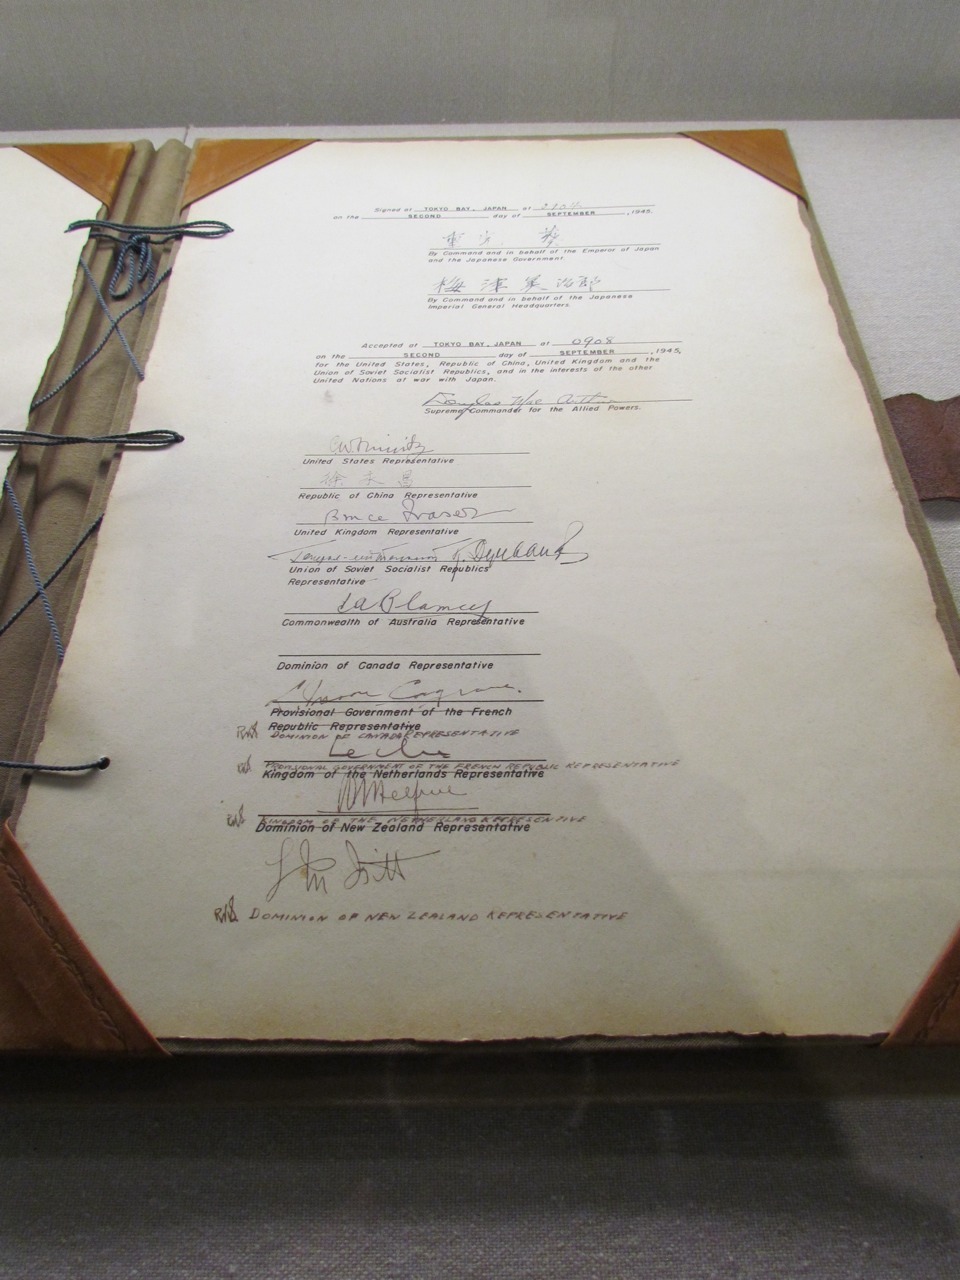 Signed at TOKYO BAY, JAPAN at
on the SECOND day of SEPTEMBER, 1945.
重光 葵
By Command and in behalf of the Emperor of Japan
and the Japanese Government.
梅津美治郎
By Command and in behalf of the Japanese
Imperial General Headquarters.
Accepted at TOKYO BAY, JAPAN at 0908
on the SECOND day of SEPTEMBER, 1945,
for the United States, Republic of China, United Kingdom and the
Union of Soviet Socialist Republics, and in the interests of the other
United Nations at war with Japan.
Douglas MacArthur
Supreme Commander for the Allied Powers.
C.W. Nimitz
United States Representative
徐永昌
Republic of China Representative
Bruce Fraser
United Kingdom Representative
Union of Soviet Socialist Republics
Representative
T.A. Blamey
Commonwealth of Australia Representative
Dominion of Canada Representative
L. Moore Cosgrave.
Provisional Government of the French
Republic Representative
DOMINION OF CANADA REPRESENTATIVE
Le Clerc
PROVISIONAL GOVERNMENT OF THE FRENCH REPUBLIC REPRESENTATIVE
Kingdom of the Netherlands Representative
KINGDOM OF THE NETHERLANDS REPRESENTATIVE
Dominion of New Zealand Representative
L M Isitt
DOMINION OF NEW ZEALAND REPRESENTATIVE